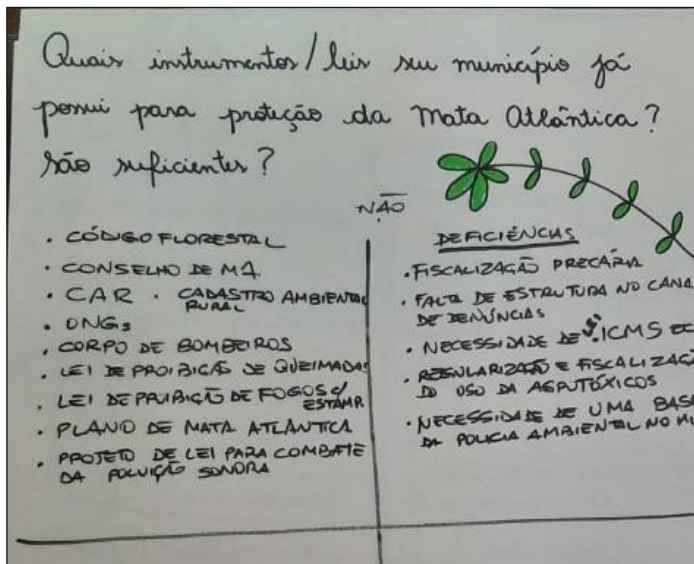 Quais instrumentos/leis seu município já
possui para proteção da Mata Atlântica?
São suficientes?
NÃO
• CÓDIGO FLORESTAL
• CONSELHO DE MA.
• CAR • CADASTRO AMBIENTAL
RURAL
• ONGs
• CORPO DE BOMBEIROS
• LEI DE PROIBIÇÃO DE QUEIMADAS
• LEI DE PROIBIÇÃO DE FOGOS C/
ESTAMP.
• PLANO DE MATA ATLÂNTICA
• PROJETO DE LEI PARA COMBATE
DA POLUIÇÃO SONORA
DEFICIÊNCIAS
• FISCALIZAÇÃO PRECÁRIA
• FALTA DE ESTRUTURA NO CANA
DE DENÚNCIAS
• NECESSIDADE DE ICMS EC
• REGULARIZAÇÃO E FISCALIZAÇÃ
DO USO DA AGROTÓXICOS
• NECESSIDADE DE UMA BAS
DA POLICIA AMBIENTAL NO MU